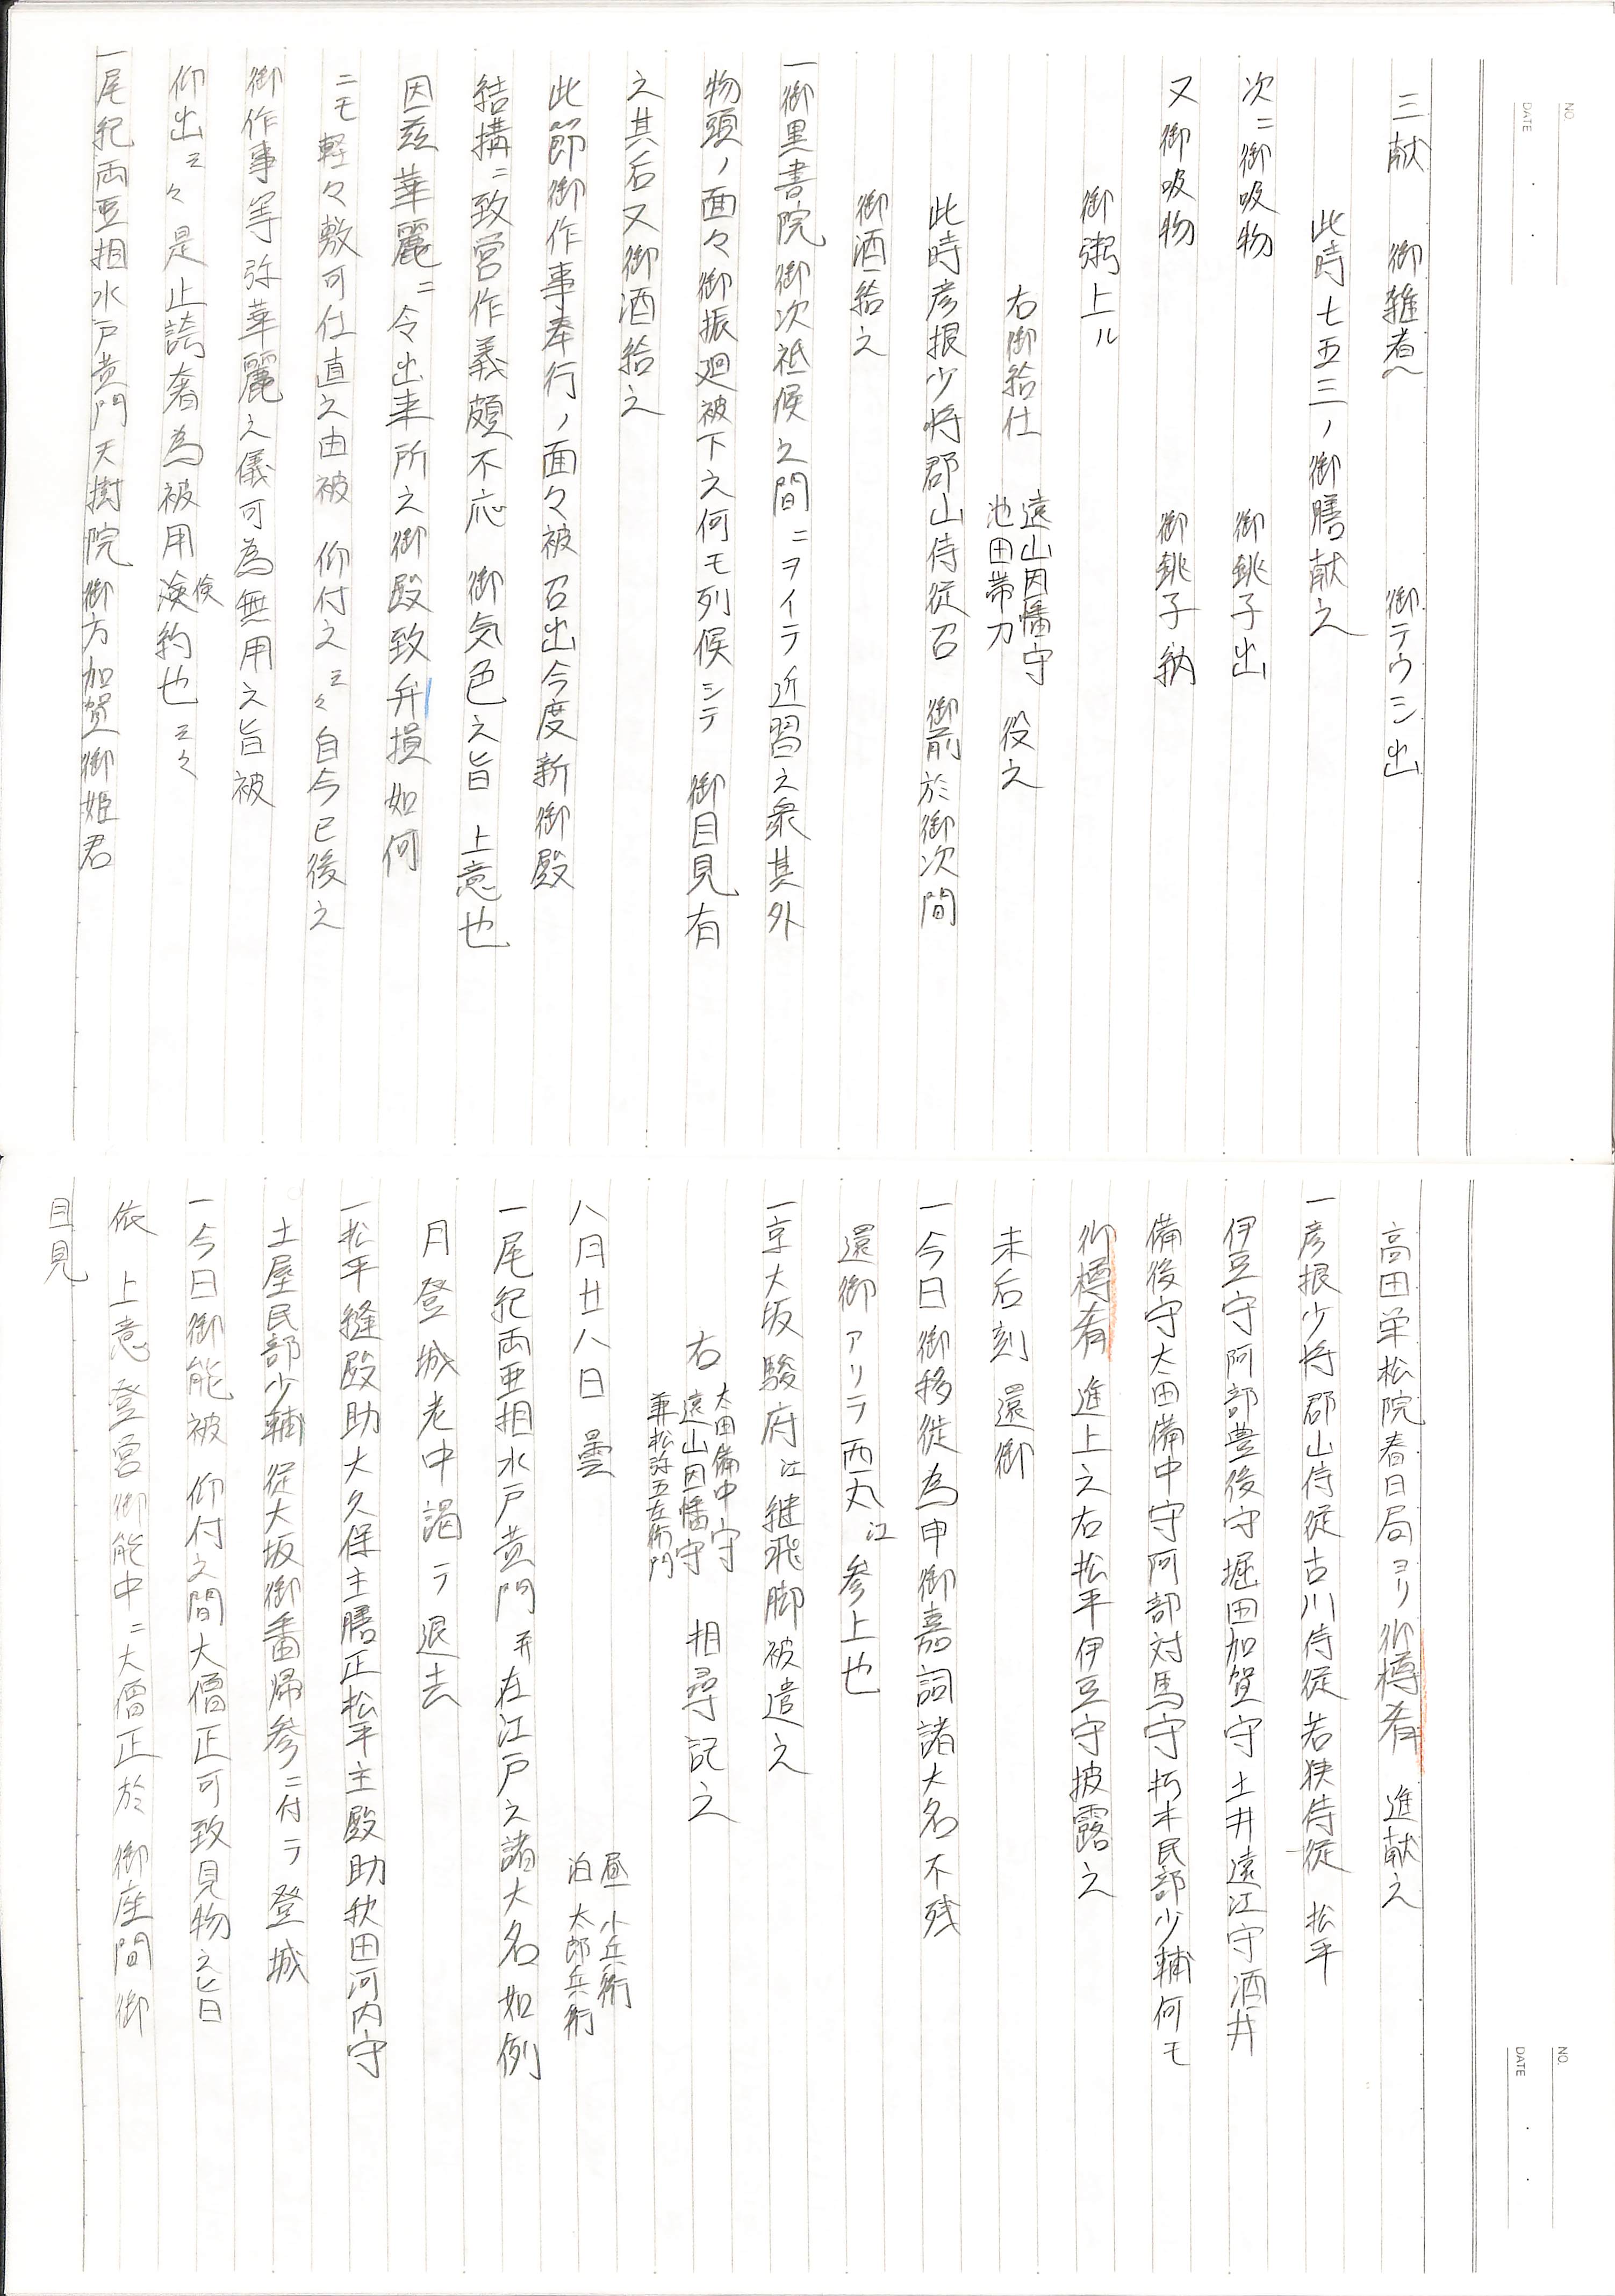 NO.
DATE
三献 御雑煮 御テウシ出
此時七五三ノ御膳献之
次ニ御吸物 御銚子出
又御吸物 御銚子納
御粥上ル
右御給仕 遠山因幡守 池田帯刀 役之
此時彦根少将郡山侍従召 御前於御次間
御酒給之
一御黒書院御次祗候之間ニヲイテ近習之衆其外
物頭ノ面々御振廻被下之何モ列候シテ 御目見有
之其后又御酒給之
此節御作事奉行ノ面々被召出今度新御殿
結構ニ致営作義頗不応 御気色之旨 上意也
因茲華麗ニ令出来所之御殿致弁損如何
ニモ軽々敷可仕直之由被 仰付之云々自今已後之
御作事等弥華麗之儀可為無用之旨被
仰出云々是止誇奢為被用倹約也云々
一尾紀両亜相水戸黄門天樹院御方加賀御姫君
NO.
DATE
高田栄松院春日局ヨリ御樽肴 進献之
一彦根少将郡山侍従古川侍従若狭侍従 松平
伊豆守阿部豊後守堀田加賀守土井遠江守酒井
備後守太田備中守阿部対馬守朽木民部少輔何モ
御樽肴進上之右松平伊豆守披露之
未后刻 還御
一今日御移徙為申御嘉詞諸大名不残
還御アリテ西丸江参上也
一京大坂駿府江継飛脚被遣之
右 太田備中守 遠山因幡守 兼松弥五左衛門 相尋記之
八月廿八日 曇 昼 小兵衛 泊 太郎兵衛
一尾紀両亜相水戸黄門并在江戸之諸大名如例
月登城老中謁テ退去
一松平縫殿助大久保主膳正松平主殿助秋田河内守
土屋民部少輔従大坂御番帰参ニ付テ登城
一今日御能被 仰付之間大僧正可致見物之旨
依 上意登営御能中ニ大僧正於 御座間御
目見